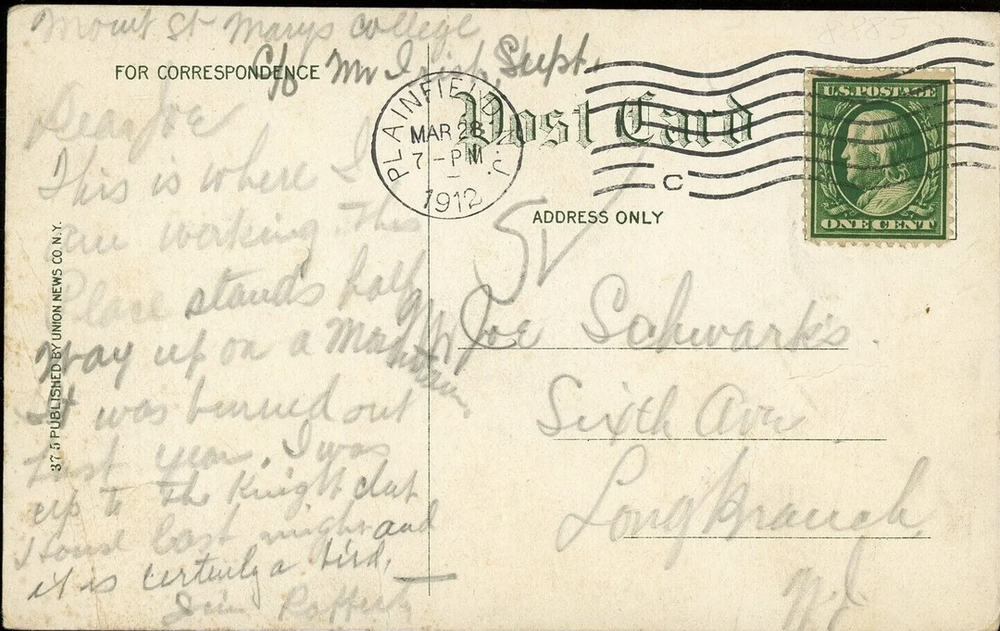 Mount St Marys College
C/o Mr Irish, Supt.
FOR CORRESPONDENCE
Dear Joe
This is where I
am working. This
Place stands half
way up on a Mountain
It was burned out
last year. I was
up to the Knight club
House last night and
it is certenly a bird.
Jim Rafferty
37 5 PUBLISHED BY UNION NEWS CO. N.Y.
Post Card
PLAINFIELD N.J.
MAR 28
7-PM
1912
C
U.S. POSTAGE
ONE CENT
ADDRESS ONLY
Joe Schwarks
Sixth Ave
Long Branch
N.J.